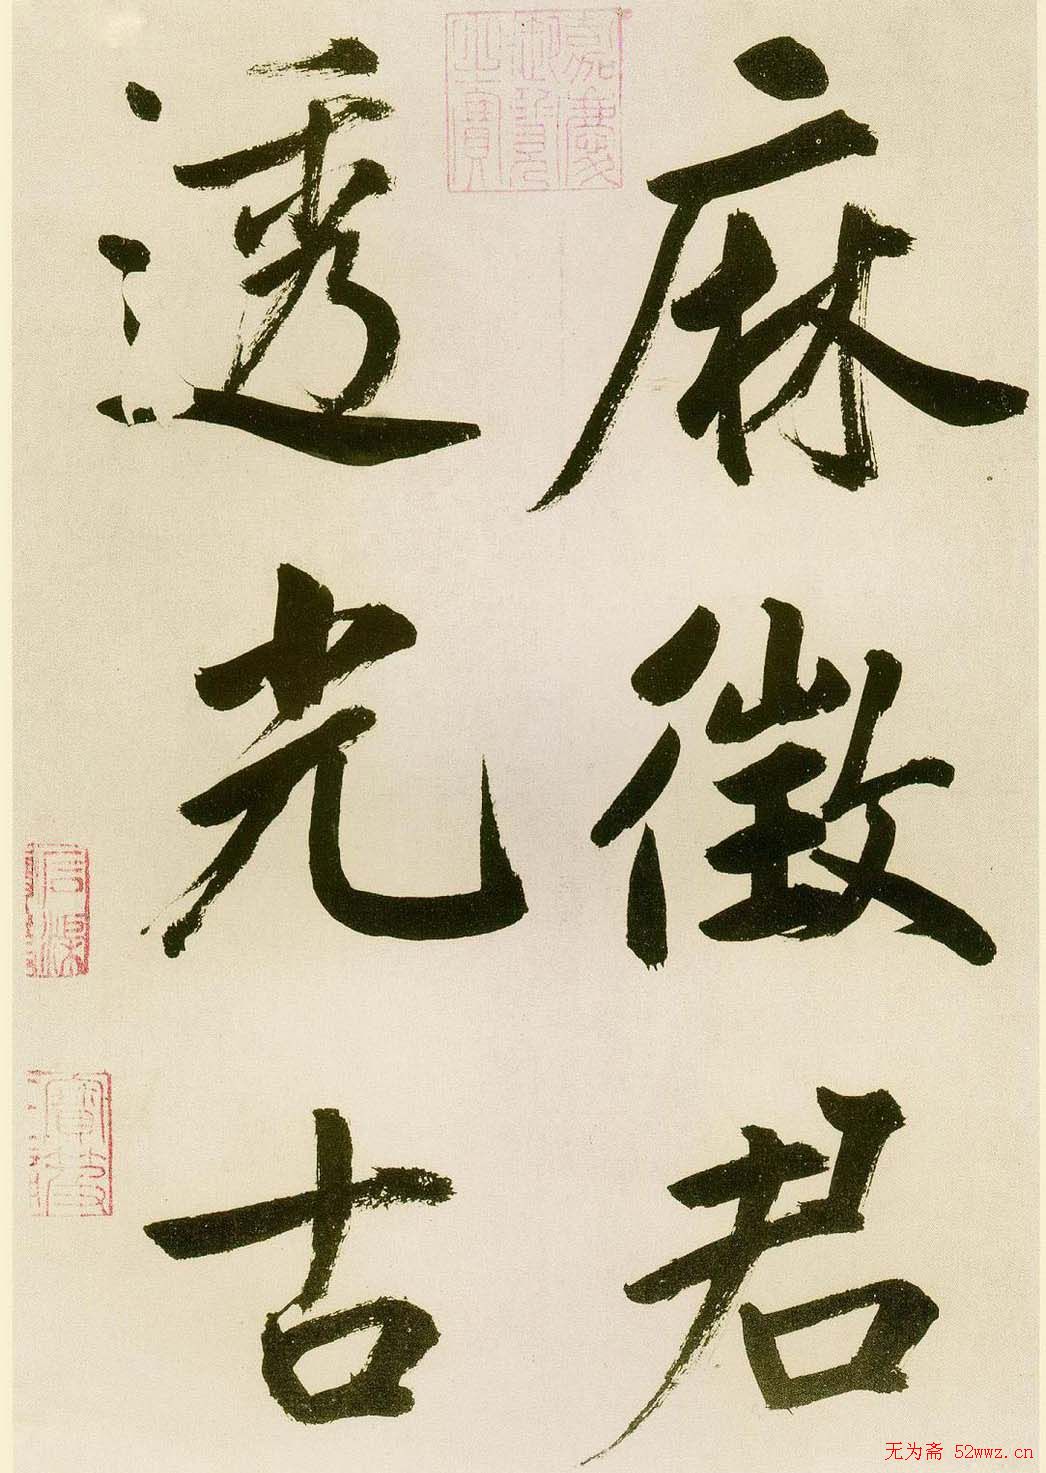 麻徵君
透光古
嘉慶御覽之寶
无为斋 52wwz.cn